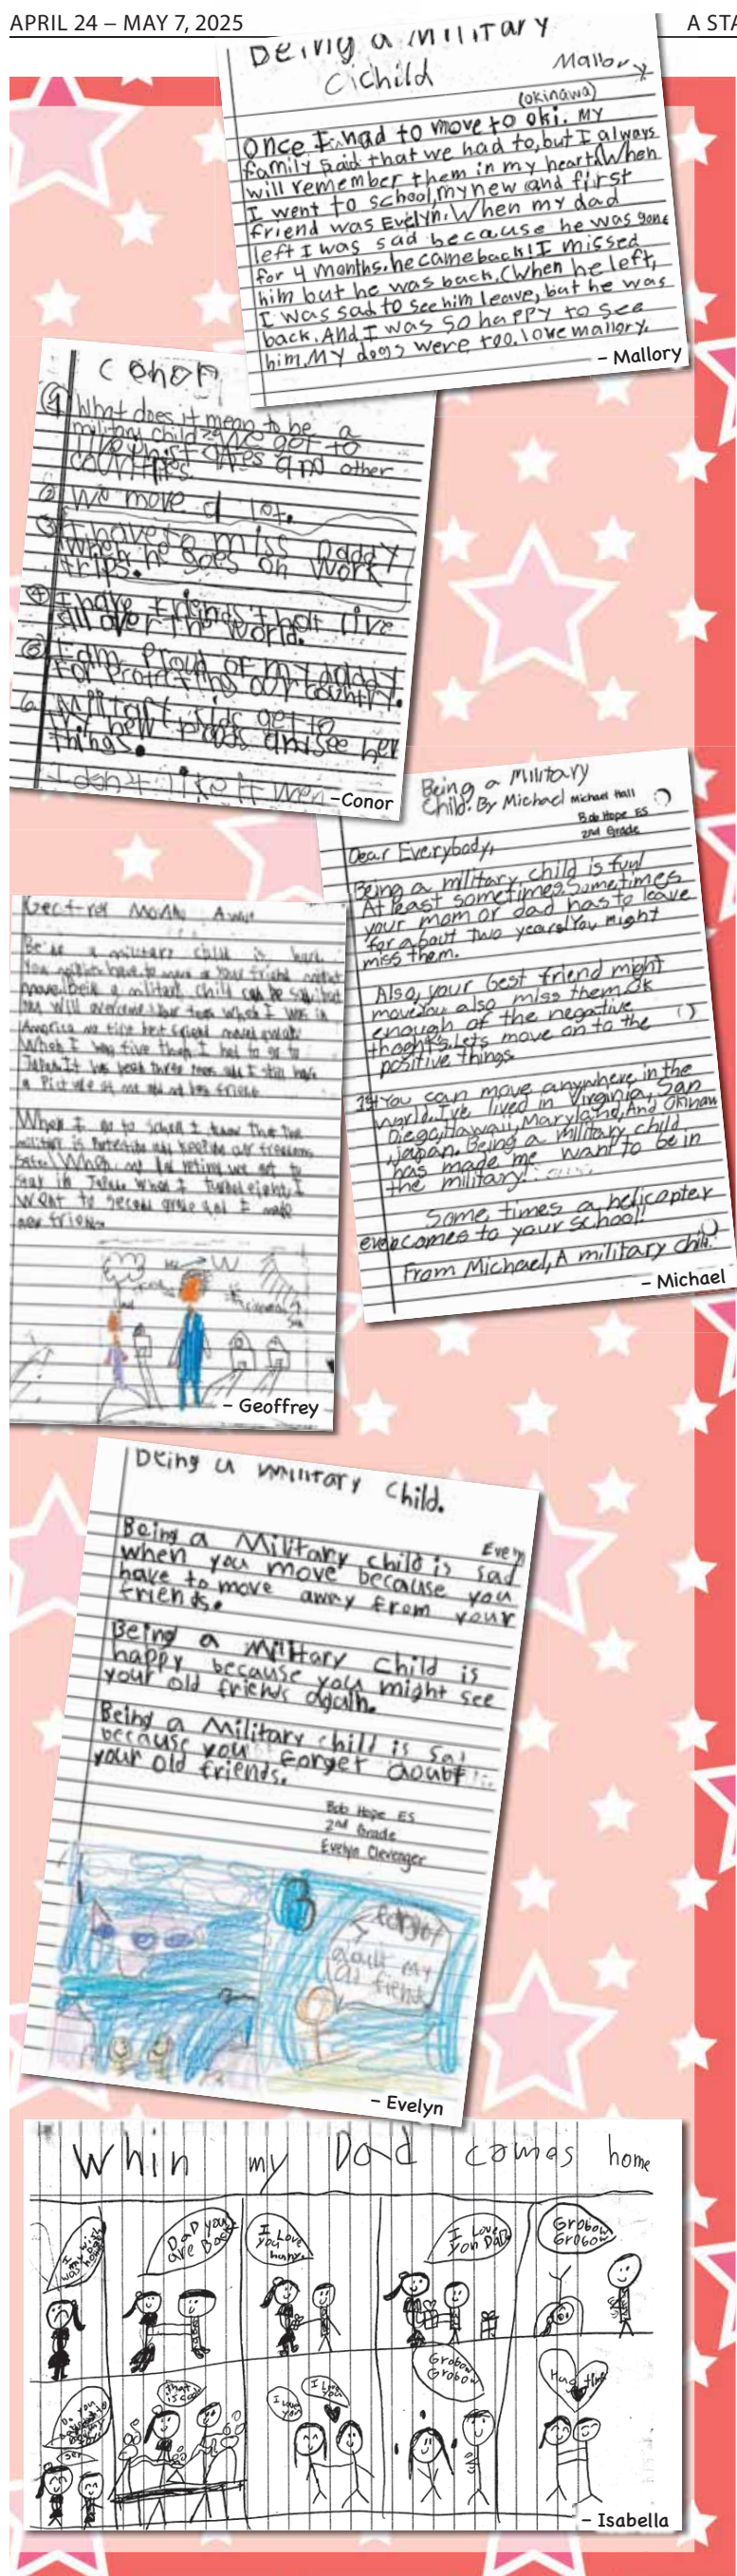 APRIL 24 – MAY 7, 2025
A STA
Being a Military
Cichild
Mallory
(okinawa)
Once I had to move to oki. My
family said that we had to, but I always
will remember them in my heart. When
I went to school, my new and first
friend was Evelyn. When my dad
left I was sad because he was gone
for 4 months. he came back! I missed
him but he was back. (When he left,
I was sad to see him leave, but he was
back. And I was so happy to see
him. My dogs were too. love mallory.
– Mallory
Conor
1 What does it mean to be a
military child? We get to
live in states and other
countries.
2 We move a lot.
3 I have to miss Daddy
when he goes on work
trips.
4 I have friends that live
all over the world.
5 I am proud of my daddy
for protecting our country.
6. Military kids get to
new places and see new
things.
I don't like it when
–Conor
Being a Military
Child. By Michael Michael Hall
Bob Hope ES
2nd Grade
Dear Everybody,
Being a military child is fun!
At least sometimes. Sometimes
your mom or dad has to leave
for about two years! You might
miss them.
Also, your best friend might
move. You also miss them. Ok
enough of the negative
thoghts. Lets move on to the
positive things.
You can move anywhere in the
world. I've lived in Virginia, San
Diego, Hawaii, Maryland, And Okinawa
, Japan. Being a military child
has made me want to be in
the military!
Some times a helicopter
even comes to your school!
From Michael, A military child.
– Michael
Being a military child is hard.
You might have to move or your friend might
move. Being a military child can be sad, but
you will overcome your fears. When I was in
America my first best friend moved away.
When I was five then I had to go to
Japan. It has been three years and I still have
a picture of me and my best friend.
When I go to school I know that the
military is protecting and keeping our freedoms
safe. When my dad retires we get to
stay in Japan. When I turned eight, I
went to second grade and I made
new friends.
– Geoffrey
Being a military child.
Evelyn
Being a Military child is sad
when you move because you
have to move away from your
friends.
Being a Military child is
happy because you might see
your old friends again.
Being a Military child is sad
because you forget aboubt
your old friends.
Bob Hope ES
2nd Grade
Evelyn Clevenger
I forgot
aout my
old fiends
– Evelyn
Whin my Dad comes home
I my wish
Dad was home
Dad you
are Back
I Love
you huny
I Love
you Dad
Grobow
Grobow
That
is cool
I Love
you
I Love
you
Grobow
Grobow
Hug time
– Isabella